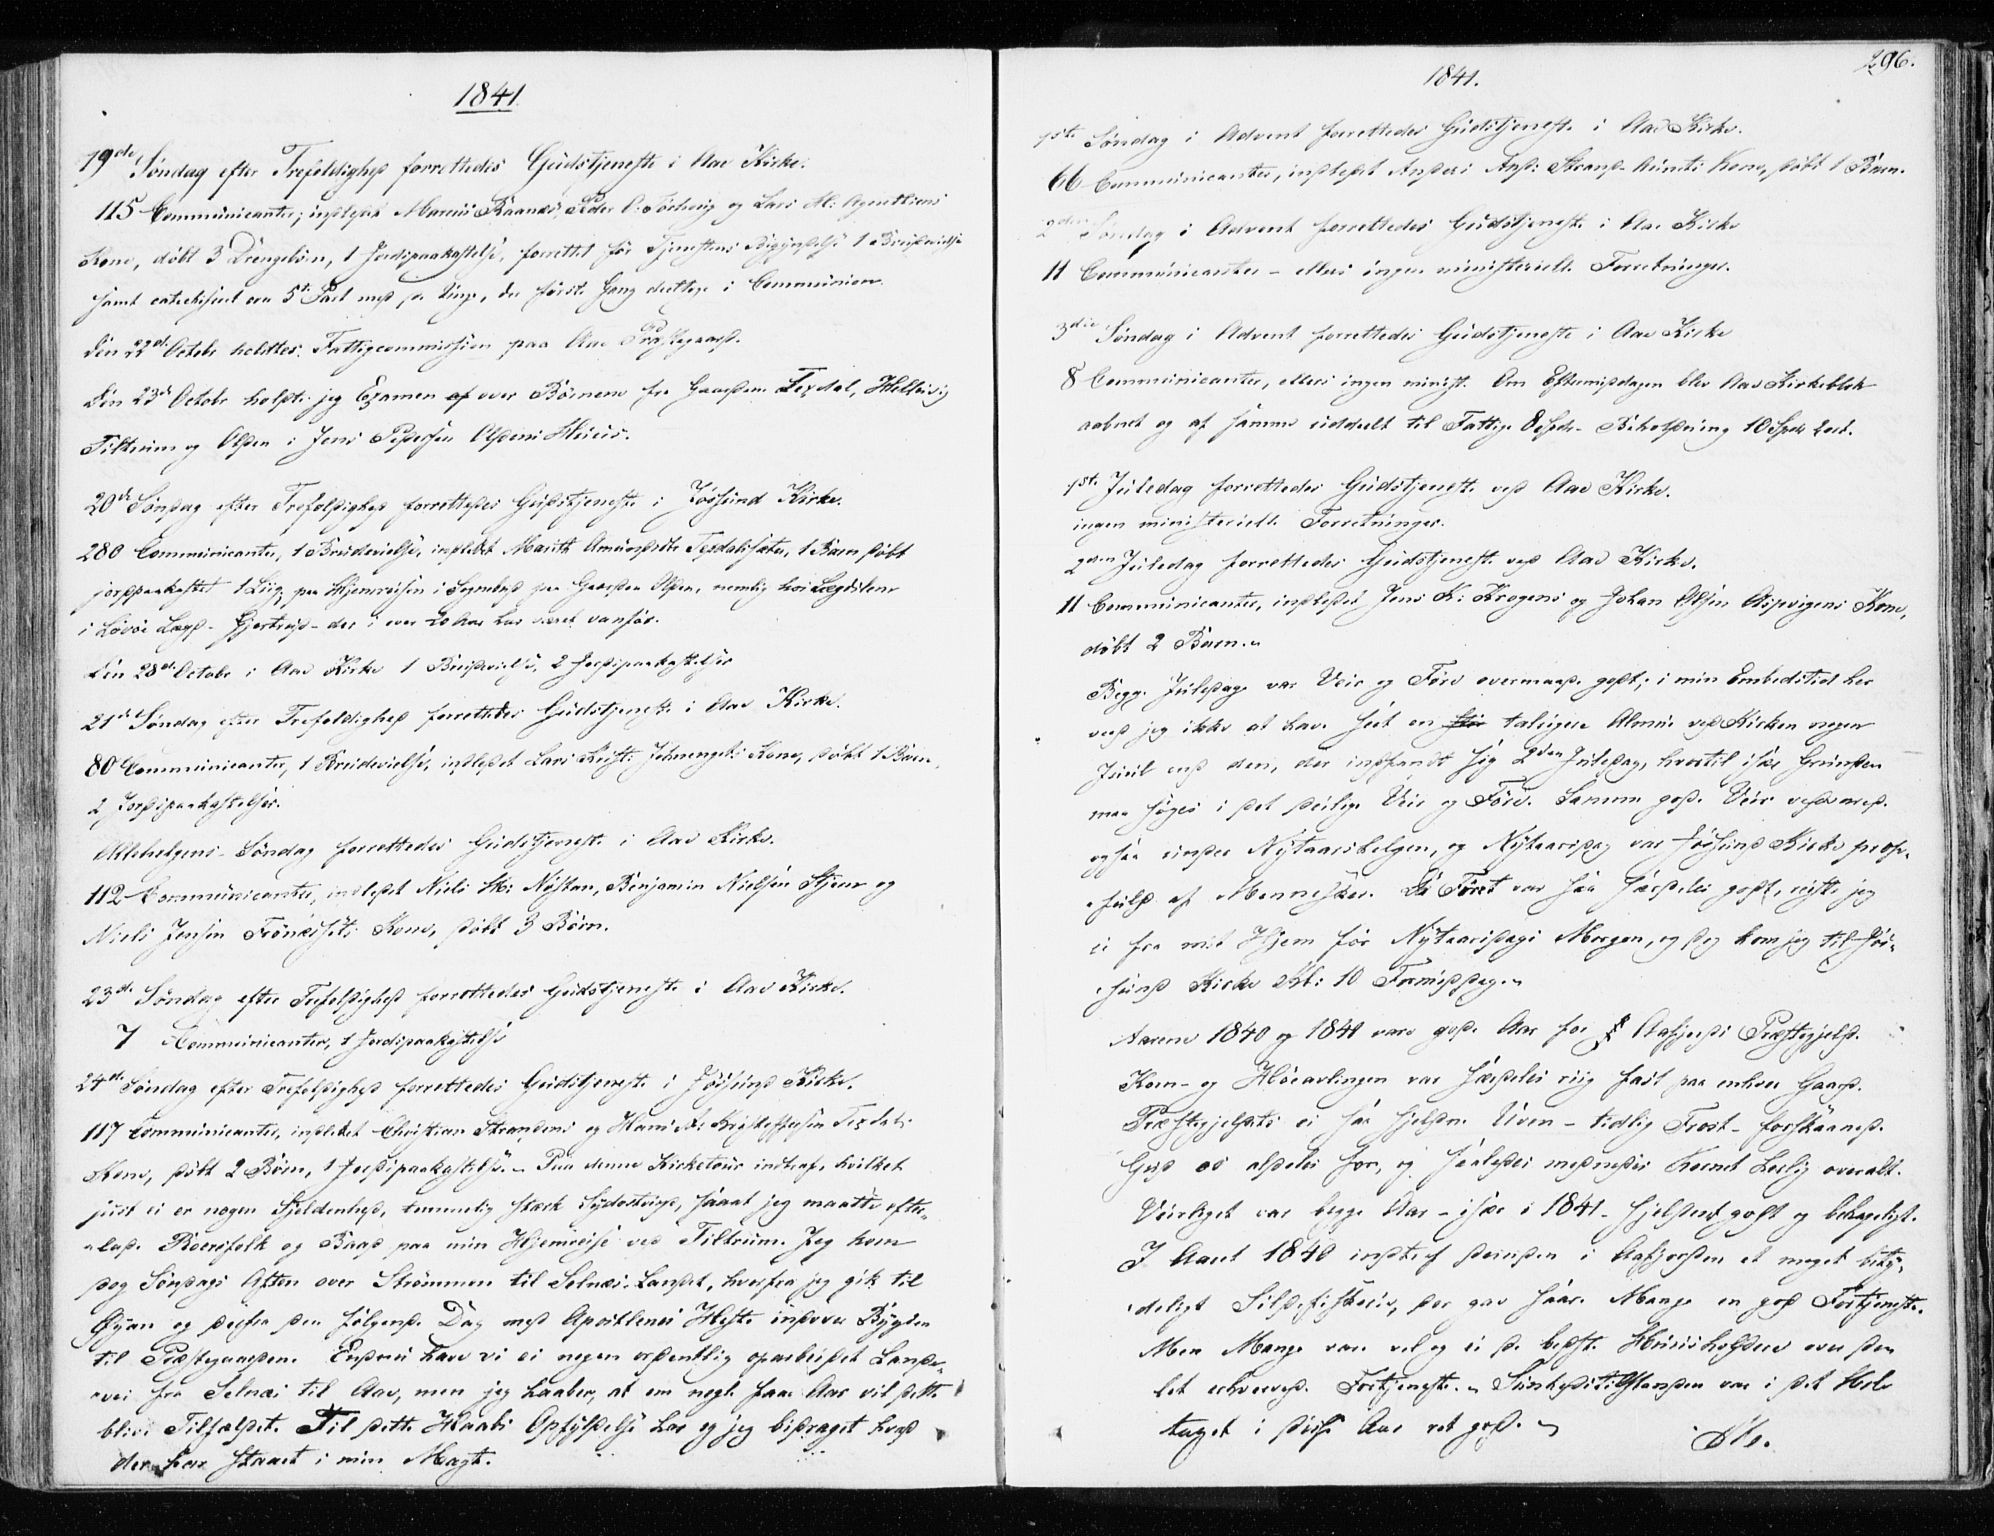 1841
19de Søndag efter Trefoldighed forrettedes Gudstjeneste i Aae Kirke.
115 Communicanter; indledet Marius Raanæs, Peder O: Sørhøig og Lars M: Agnethens
Kone, døbt 3 Drengebørn, 1 Jordspaakastelse, forrettet før Tjenestens Begyndelse 1 Brudevielse
samt catechiseret over 5te Part med de Unge, der første Gang deeltoge i Communionen.
Den 22de Octobr holdtes Fattigcommission paa Aae Præstegaard.
Den 23de Octobr holdt jeg Examen over Børnene fra Gaardene Texdal, Hellesvig
Tiltrum og Olden i Jens Pedersen Oldens Huus.
20de Søndag efter Trefoldighed forrettedes Gudstjeneste i Jøssund Kirke.
280 Communicanter, 1 Brudevielse, indledet Marith Amundsdtr Texdalsæter, 1 Barn døbt
jordpaakastet 1 Liig, paa Hjemreisen i Sognebud paa Gaarden Olden, nemlig hos Lægdslem
i Løvøe Lægd - Gjertrud - der i over 20 Aar har været vanfør.
Den 28de Octobr i Aae Kirke 1 Brudevielse, 2 Jordspaakastelser
21de Søndag efter Trefoldighed forrettedes Gudstjeneste i Aae Kirke.
80 Communicanter, 1 Brudevielse, indledet Lars Krist: Johnengets Kone, døbt 1 Barn,
2 Jordspaakastelser.
Allehelgens-Søndag forrettedes Gudstjeneste i Aae Kirke.
112 Communicanter, indledet Niels M: Nøstan, Benjamin Nielsen Stjern og
Niels Jensen Krones Kone, døbt 3 Børn.
23de Søndag efter Trefoldighed forrettedes Gudstjeneste i Aae Kirke.
7 Communicanter, 1 Jordspaakastelse
24de Søndag efter Trefoldighed forrettedes Gudstjeneste i Jøssund Kirke.
117 Communicanter, indledet Christian Strandens og Hans A: Kristophersen Texdals
Kone, døbt 2 Børn, 1 Jordspaakastelse. - Paa denne Kirketour indtraf, hvilket
just ei er nogen Sjeldenhed, temmelig stærk Sydostvind, saaat jeg maatte efter-
lade Roersfolk og Baad paa min Hjemreise ved Tiltrum. Jeg kom
dog Søndags Aften over Strømmen til Selnæs-Landet, hvorfra jeg gik til
Øyan og derfra den følgende Dag med Apostlenes Heste indover Bygden
til Præstegaarden. Endnu have vi ei nogen ordentlig oparbeidet Lande-
vei fra Selnæs til Aae, men jeg haaber, at om nogle faae Aar vil dette
blive Tilfældet. Til dette Haabs Opfyldelse har og jeg bidraget hvad
der har staaet i min Magt.
296.
1841.
1ste Søndag i Advent forrettedes Gudstjeneste i Aae Kirke.
66 Communicanter, indledet Anders And: Strand-Aunets Kone, døbt 1 Barn.
2den Søndag i Advent forrettedes Gudstjeneste i Aae Kirke
11 Communicanter - ellers ingen ministerielle Forretninger.
3die Søndag i Advent forrettedes Gudstjeneste i Aae Kirke
8 Communicanter, ellers ingen minist. Om Eftermiddagen blev Aae Kirkeblok
aabnet og af samme uddeelt til Fattige 8 Spdr. Beholdning 10 Spdr 2 ort.
1ste Juledag forrettedes Gudstjeneste ved Aae Kirke.
ingen ministerielle Forretninger.
2den Juledag forrettedes Gudstjeneste ved Aae Kirke.
11 Communicanter, indledet Jens K: Krogens og Johan Olsen Aspvigens Kone,
døbt 2 Børn.
Begge Juledage var Veir og Føre overmaade godt; i min Embedstid her
veed jeg ikke at have seet en talrigere Almue ved Kirken nogen
Juul end den, der indfandt sig 2den Juledag, hvortil især Grunden
maa søges i det deilige Veir og Føre. Samme gode Veir vedvarede
ogsaa under Nytaarshelgen, og Nytaarsdag var Jøssund Kirke prop-
fuld af Mennesker. Da Føret var saa særdeles godt, reiste jeg
ei fra mit Hjem før Nytaarsdags Morgen, og dog kom jeg til Jøs-
sund Kirke Kl: 10 Formiddag.
Aarene 1840 og 1841 vare gode Aar for Aafjords Præstegjeld.
Korn- og Høeavlingen var særdeles riig fast paa enhver Gaard.
Præstegjeldets ei saa sjeldne Uven - tidlig Frost - forskaanede
Gud os aldeles for, og saaledes modnedes Kornet herlig overalt.
Veirliget var begge Aar - især i 1841 - sjeldent godt og behageligt.
I Aaret 1840 indtraf desuden i Aafjorden et meget bety-
deligt Sildefiskerie, der gav saare Mange en god Fortjeneste.
Men Mange vare vel og ei de bedste Huusholdere over den
let erhvervede Fortjeneste. Sundhedstilstanden var i det Hele
taget i disse Aar ret god.